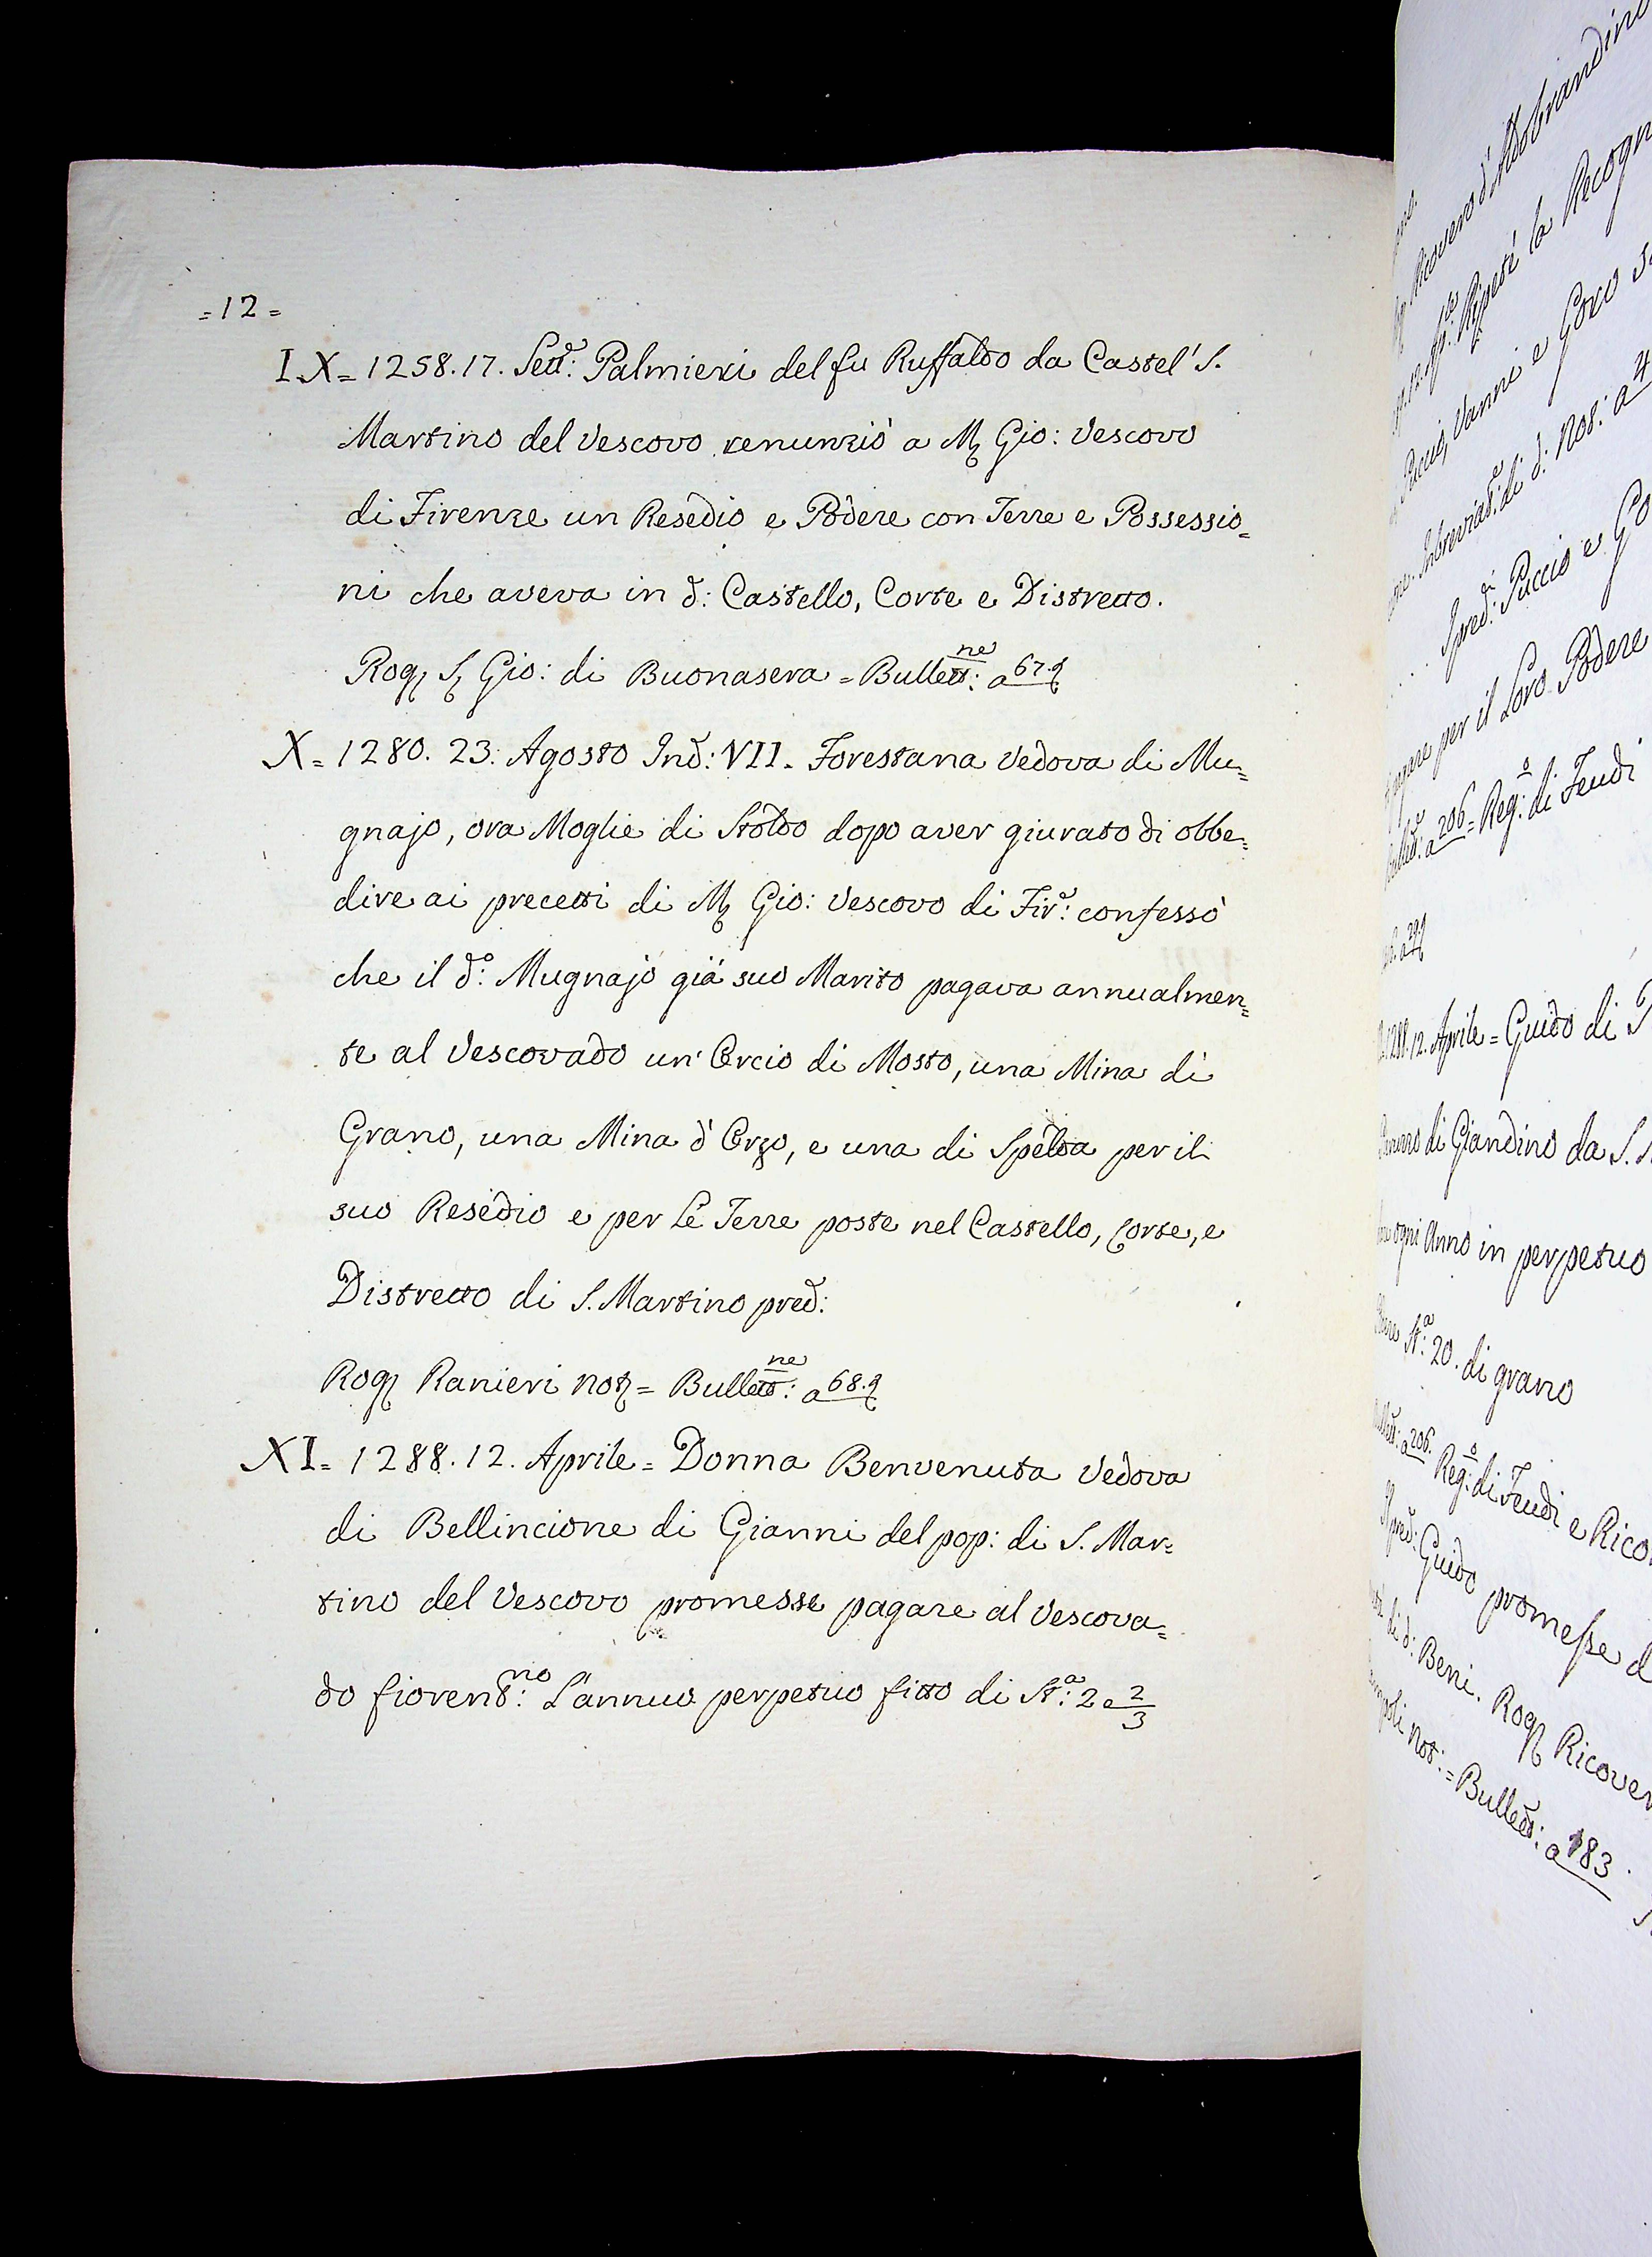 =12=
IX= 1258. 17. Sett.e: Palmieri del fu Ruffaldo da Castel' S.
Martino del Vescovo renunziò a M Gio: Vescovo
di Firenze un Resedio e Podere con Terre e Possessio=
ni che aveva in d: Castello, Corte e Distretto.
Rog S Gio: di Buonasera = Bullett:ne a 67.
X= 1280. 23. Agosto Ind: VII. Forestana Vedova di Mu=
gnajo, ora Moglie di Stoldo dopo aver giurato di obbe=
dire ai precetti di M Gio: Vescovo di Fir.e: confessò
che il d.o: Mugnajo già suo Marito pagava annualmen=
te al Vescovado un' Orcio di Mosto, una Mina di
Grano, una Mina d'Orzo, e una di Spelda per il
suo Resedio e per Le Terre poste nel Castello, Corte, e
Distretto di S. Martino pred:
Rog Ranieri not = Bullett:ne a 68.
XI= 1288. 12. Aprile = Donna Benvenuta Vedova
di Bellincione di Gianni del pop: di S. Mar=
tino del Vescovo promesse pagare al Vescova=
do fiorent:no L'annuo perpetuo fitto di St.a: 2 e 2/3
Ricovero d'Aldobrandino
Ripeté la Recogn
Puccio, Vanni e Goro
Inbreviat.e: di d: Not: a 4
I pred:di Puccio e Go
pagare per il Loro Podere
Bullett: a 206 = Reg:o di Feudi
1288. 12. Aprile = Guido di
di Giandino da S.
ogni Anno in perpetuo
St.a: 20. di grano
a 206. Reg:o di Feudi e Rico
Il pred: Guido promesse
di d: Beni. Rog Ricover
not: = Bullett: a 183